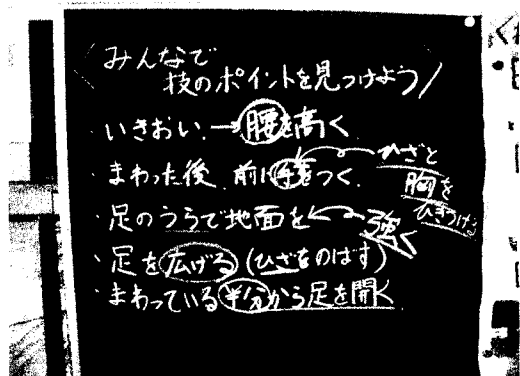 みんなで
技のポイントを見つけよう/
・いきおい→腰を高く
・まわった後、前に手をつく。
ひざと
胸を
ひきつける
・足のうらで地面を
強く
・足を広げる(ひざをのばす)
・まわっている半分から足を開く